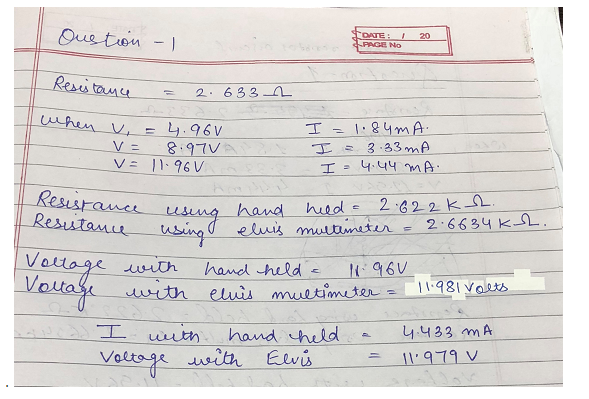 Question - 1
DATE: / 20
PAGE No
Resistance = 2. 633 Ω
when V₁ = 4.96V I = 1.84mA.
V = 8.97V I = 3.33mA
V = 11.96V I = 4.44 mA.
Resistance using hand held = 2.622 K Ω.
Resistance using elvis multimeter = 2.6634 K Ω.
Voltage with hand held = 11.96V
Voltage with elvis multimeter = 11.981 Volts
I with hand held = 4.433 mA
Voltage with Elvis = 11.979 V